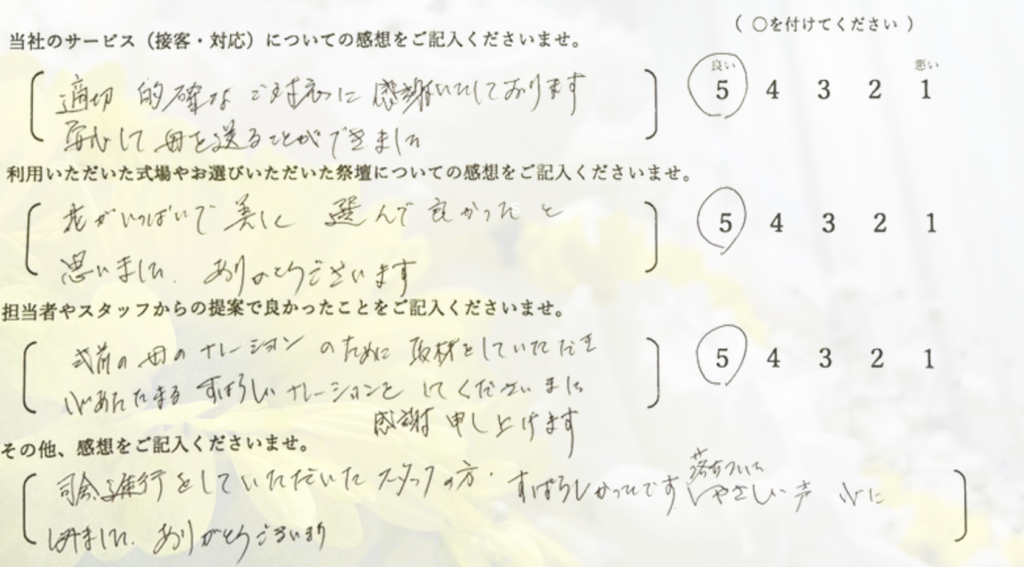 （ ○を付けてください ）
当社のサービス（接客・対応）についての感想をご記入くださいませ。
良い 悪い
5 4 3 2 1
適切 的確な ご対応に 感謝いたしております
安心して 母を送ることができました
利用いただいた式場やお選びいただいた祭壇についての感想をご記入くださいませ。
5 4 3 2 1
花がいっぱいで 選んで良かったと
思いました。ありがとうございます
担当者やスタッフからの提案で良かったことをご記入くださいませ。
5 4 3 2 1
式前の母のナレーションのために 取材をしていただき
心あたたまる すばらしいナレーションと してくださいました
感謝 申し上げます
その他、感想をご記入くださいませ。
落ちついた
司会進行をしていただいたスタッフの方・すばらしかったです やさしい声 心に
しみました。ありがとうございます